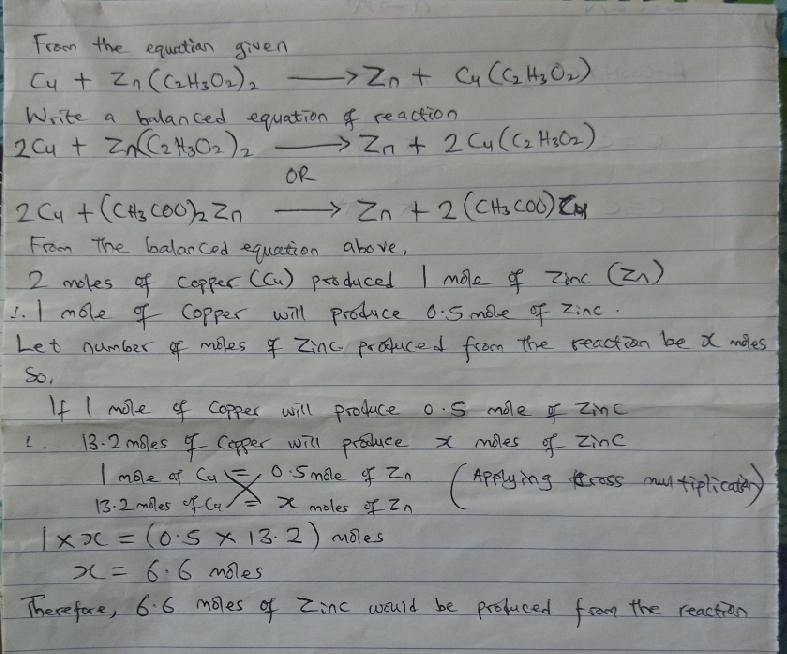 From the equation given
Cu + Zn(C2H3O2)2 ⟶ Zn + Cu(C2H3O2)
Write a balanced equation of reaction
2Cu + Zn(C2H3O2)2 ⟶ Zn + 2Cu(C2H3O2)
OR
2Cu + (CH3COO)2Zn ⟶ Zn + 2(CH3COO)Cu
From The balanced equation above,
2 moles of copper (Cu) produced 1 mole of zinc (Zn)
∴ 1 mole of Copper will produce 0.5 mole of zinc.
Let number of moles of zinc produced from the reaction be x moles
So,
If 1 mole of copper will produce 0.5 mole of zinc
∴ 13.2 moles of copper will produce x moles of zinc
1 mole of Cu = 0.5 mole of Zn (Applying cross multiplication)
13.2 moles of Cu = x moles of Zn
1 × x = (0.5 × 13.2) moles
x = 6.6 moles
Therefore, 6.6 moles of zinc would be produced from the reaction